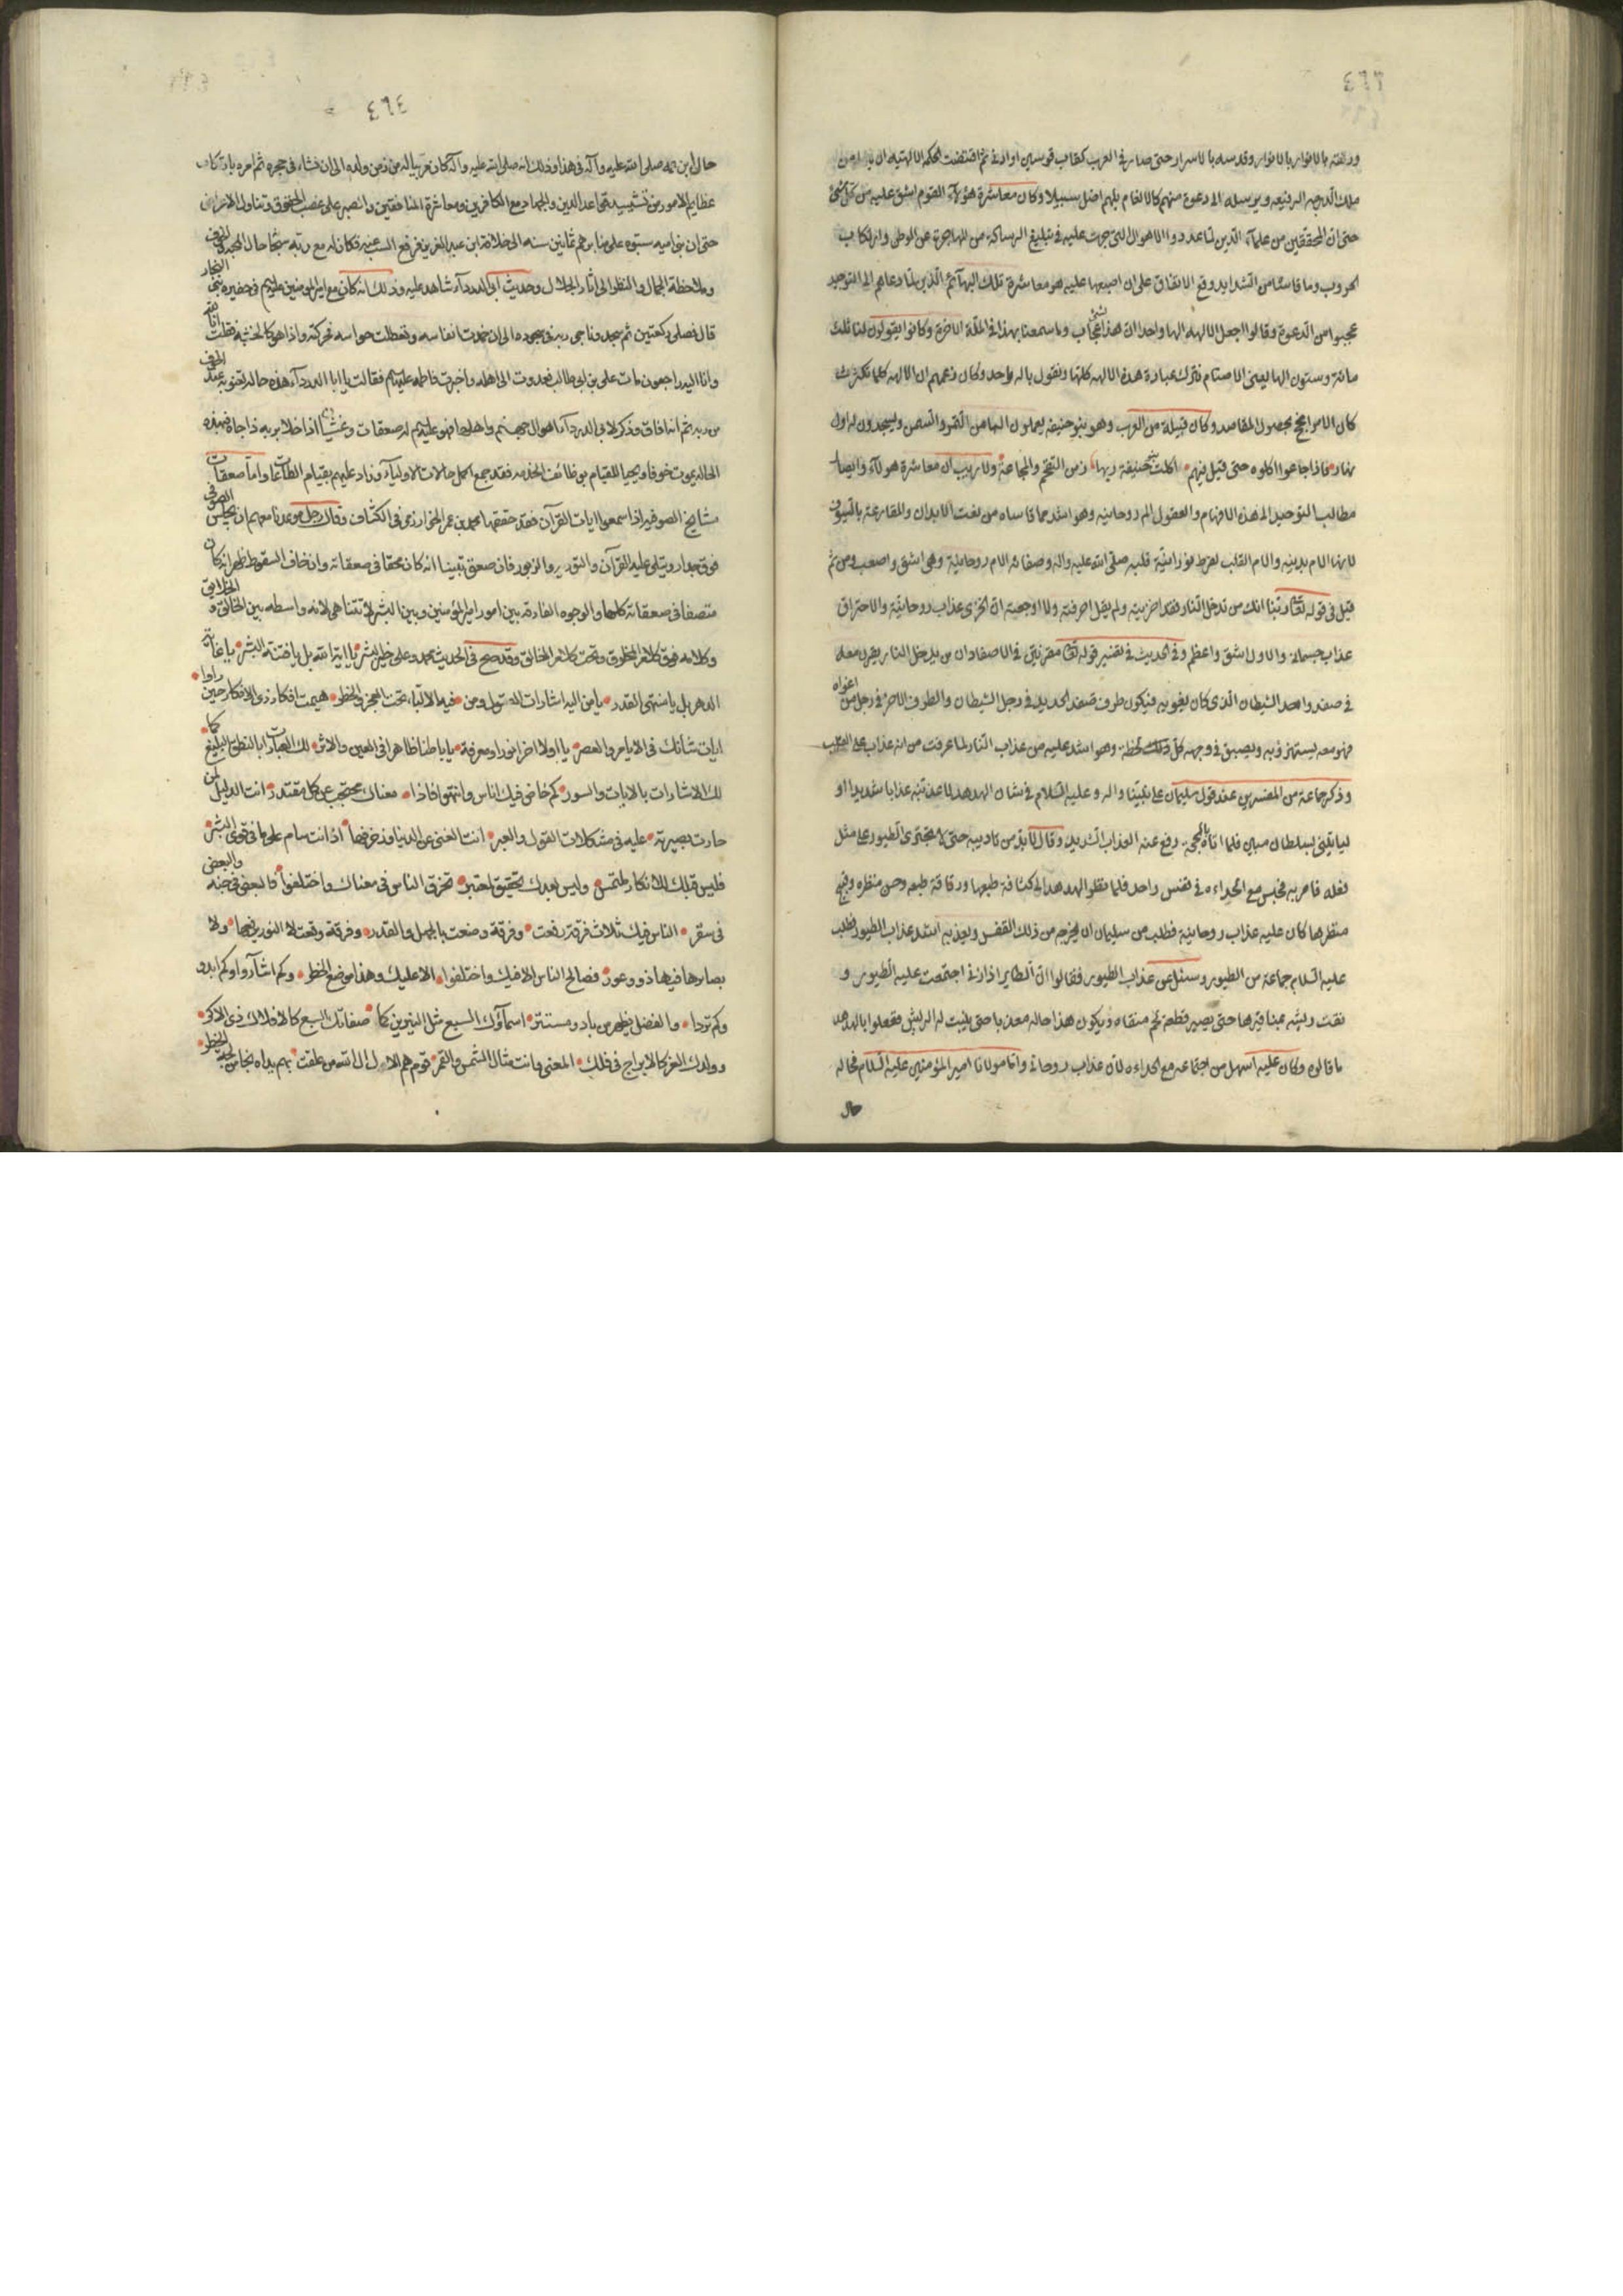 ٤٦٣
ورفعته بالانوار وقدسه بالاسرار حتى صار في القرب كقاب قوسين او ادنى ثم اقتضت الحكم الالهيه ان
تلك الدرجه الرفيعه ويرسله الى دعوة منهم كالانعام بل هم اضل سبيلا وكان معاشرة هؤلاء القوم اشق عليه من كل شئ
حتى ان المحققين من علماء الدين لما عددوا الاهوال التي جرت عليه في تبليغ الرسالة من المهاجرة عن الوطن وارتكاب
الحروب وما قاسا من الشدايد وقع الاتفاق على ان اصعبها عليه هو معاشرة تلك البهائم الذين لما دعاهم الى التوحيد
عجبوا من الدعوة وقالوا اجعل الالهه الها واحدا ان هذا لشئ عجاب وما سمعنا بهذا في الملة الاخرة وكانوا يقولون لنا ثلث
مائة وستون الها يعني الاصنام نترك عبادة هذه الالهه كلها ونقول باله واحد وكان زعمهم ان الالهه كلما تكثرت
كان الامر انجح بحصول المقاصد وكان قبيلة من العرب وهو بنو حنيفه يعملون الها من التمر والسمن ويسجدون له اول
نهار فاذا جاعوا اكلوه حتى قيل فيهم اكلت حنيفة ربها زمن التقحم والمجاعة ولا ريب ان معاشرة هولاء وايصال
مطالب التوحيد الى هذه الافهام والعقول الم روحانيه وهو اشد مما قاساه من تعب الابدان والمقارعة بالسيوف
لانها الام بدنيه والام القلب لفرط نورانية قلبه صلى الله عليه واله وصفائه الام روحانية وهي اشق واصعب ومن ثم
قيل في قوله تعالى ربنا انك من تدخل النار فقد اخزيته ولم يقل احرقته ولا اوجعته ان الخزى عذاب روحانية والاحتراق
عذاب جسمانى والاول اشق واعظم وفي الحديث في تفسير قوله تعالى مقرنين في الاصفاد ان من يدخل النار يقرن معه
في صفد واحد الشيطان الذى كان يغويه فيكون طرف صفد الحديد في رجل الشيطان والطرف الاخر في رجل من اغواه
فهو معه يستهزؤ به ويبصق في وجهه كل لحظة وهو اشد عليه من عذاب النار لما عرفت من انه عذاب على القلب
وذكر جماعة من المفسرين عند قول سليمان على نبينا واله وعليه السلام في شان الهدهد لاعذبنه عذابا شديدا او
لياتيني بسلطان مبين فلما اتاه بالحجة رفع عنه العذاب الشديد وقال لابد من تاديبه حتى لا يجترى الطيور على مثل
فعله فامر به فحبس مع الحداءه في قفس واحد فلما نظر الهدهد الى كثافة طبعها ورقاقة طبعه وحسن منظره وقبح
منظرها كان عليه عذاب روحانية فطلب من سليمان ان يخرجه من ذلك القفس ويعذبه اشد عذاب الطيور فطلب
عليه السلام جماعة من الطيور وسئل عن عذاب الطيور فقالوا ان الطاير اذا زنى اجتمعت عليه الطيور و
نقت ريشه بمناقيرها حتى يصير قطعة لحم منقاه ويكون هذا حاله معذبا حتى ينبت له الريش ففعلوا بالهدهد
ما قالوه وكان عليه اسهل من اجتماعه مع الحداءه لان عذاب روحانى واما مولانا امير المؤمنين عليه السلام فحاله
حال
٤٦٤
حال ابن عمه صلى الله عليه وآله في هذا وذلك انه صلى الله عليه وآله كان مربيا له من زمن ولده الى ان نشاء في حجره ثم امره بارتكاب
عظايم الامور من تشييد قواعد الدين والجهاد مع الكافرين ومعاشرة المنافقين والصبر على غصب الحقوق وتناول الاعراض
حتى ان بنى اميه سبوه على منابرهم ثمانين سنه الى خلافة ابن عبد العزيز فرفع السب عنه فكان له مع ربه سبحانه حال المحبة والخوف
وملاحظة الجمال والنظر الى اثار الجلال وحديث ابى الدرداء شاهد عليه وذلك انه كان مع امير المومنين عليه السلم في حفيرة بنى النجار
قال فصلى ركعتين ثم سجد وناجى ربه في سجوده الى ان خمدت انفاسه وتعطلت حواسه فحركته واذا هو كالخشبه فقلت انا لله
وانا اليه راجعون مات على بن ابي طالب فعدوت الى اهله واخبرت فاطمه عليها السلم فقالت يا ابا الدرداء هذه حاله تعتريه عند الخوف
من ربه ثم انه افاق وذكر لابى الدرداء اهوال جهنم واهلها فهو عليه السلم له صعقات وغشيات اذا خلا بربه ذا جاه فهذه
الحاله يموت خوفا ويحيا للقيام بوظائف الخدمه فقد جمع اكمل حالات الاولياء وزاد عليهم بقيام الطاعات واما صعقات
مشايخ الصوفيه اذا سمعوا ايات القرآن فقد حققها محمد بن عمر الخوارزمي في الكشاف وقال رجل موعدنا معهم ان يجلس الصوفى
فوق جدار ويتلى عليه القرآن والتورية والزبور فان صعق تبينا انه كان محقا في صعقاته وان خاف السقوط ظهر انه كان
متصفا في صعقاته كلها والوجوه الفارقة بين امور امير المؤمنين وبين البشر لا تتناهى لانه واسطه بين الخالق والخلايق
وكلامه فوق كلام المخلوق وتحت كلام الخالق وقد صح في الحديث محمد وعلى خير البشر يا اية الله بل يا فتنة البشر يا غاية
الدهر بل يا منتهى القدر يا من اليه اشارات العقول ومن فيه الالباء تحت العجز والخطر هيمت افكار ذى الافكار حين راوا
ايات شانك في الايام والعصر يا اولا اخرا نورا ومعرفة يا باطنا ظاهرا في العين والاثر لك العبارات بالنطق البليغ كما
لك الاشارات بالايات والسور كم خاض فيك اناس وانتهوا فاذا معناك محتجب عن كل مقتدر انت الدليل لمن
حارت بصيرته عليه في مشكلات القول والعبر انت الغني عن الدنيا وزخرفها اذ انت سام على ما في قوى البشر
فليس قبلك للافكار ملتمس وليس بعدك تحقيق لمعتبر تفرق الناس في معناك واختلفوا فالبعض في جنة والبعض
في سقر الناس فيك ثلاث فرقة رفعت وفرقة وضعت بالجهل والقدر وفرقة وقعت لا النور يرفعها ولا
بصائرها فيها ذو وعور فصالح الناس الا فيك واختلفوا الا عليك وهذا موضع الخطر وكم اشاروا وكم ابدو
وكم تردا والفضل يظهر من باد ومستتر اسماؤك السبع مثل النيرين كما صفاتك السبع كالافلاك ذى الاكر
وولدك الغر كالابراج في فلك المعنى وانت مثال الشمس والقمر قوم هم الال ال الله من علقت بهم يداه نجا من لجة الخطر